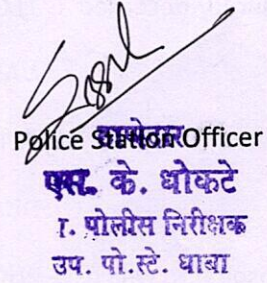 Police Station Officer
एस. के. धोकटे
पोलीस निरीक्षक
उप. पो.स्टे. धाबा